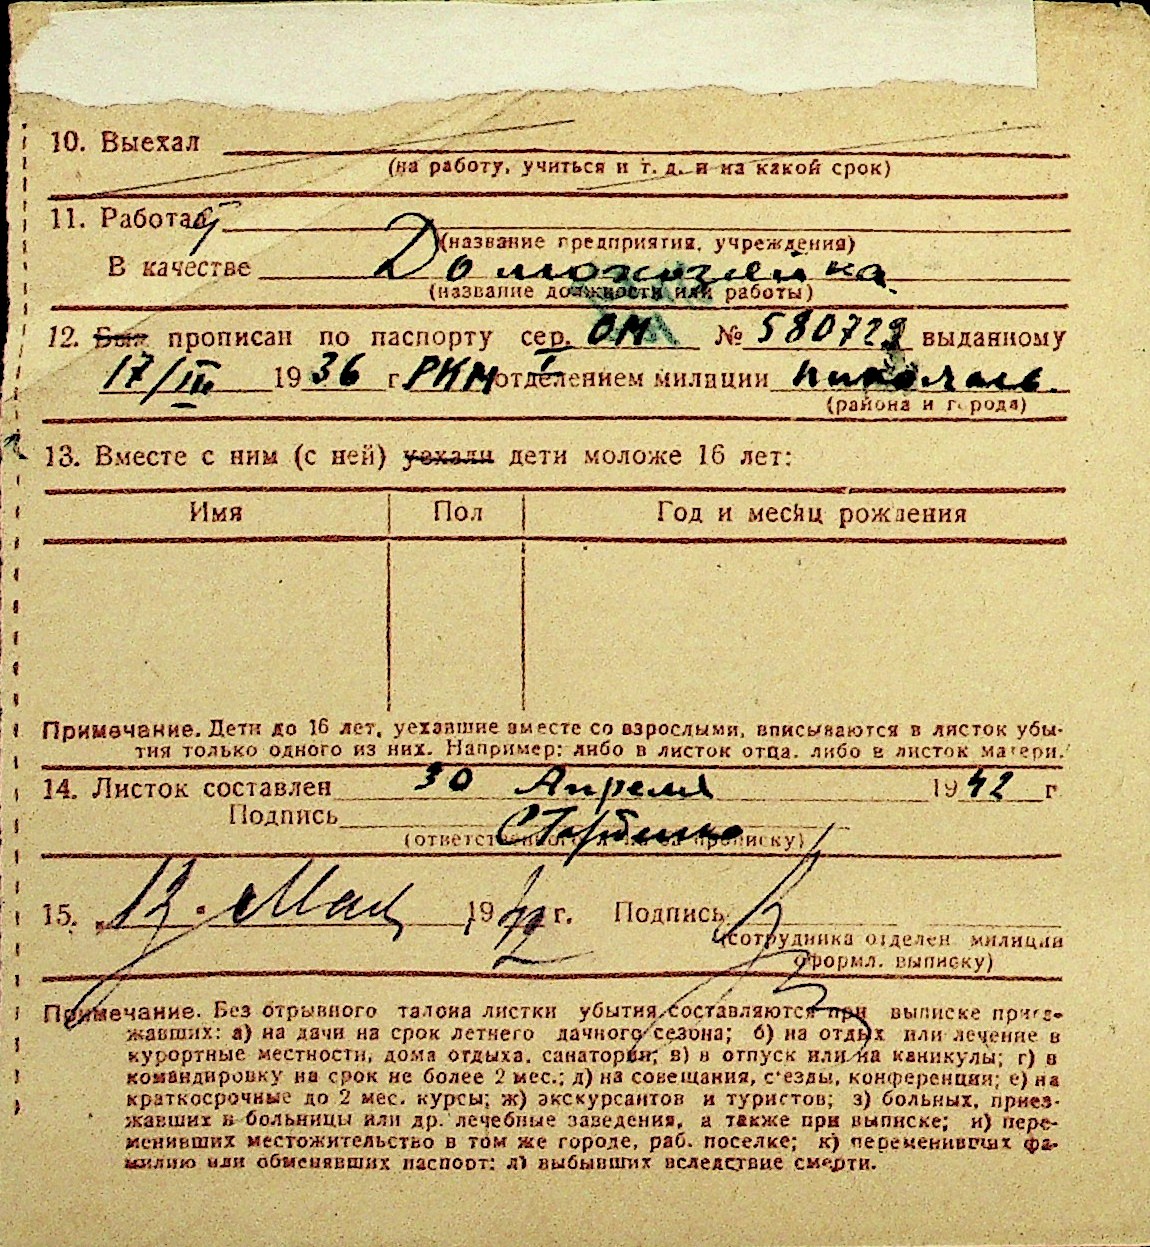 10. Выехал
(на работу, учиться и т. д. и на какой срок)
11. Работа
(название предприятия, учреждения)
В качестве Домохозяйка
(название должности или работы)
12. Был прописан по паспорту сер. ОМ № 580729 выданному
17/III 1936 г. РКМ I отделением милиции Николаев.
(района и города)
13. Вместе с ним (с ней) уехали дети моложе 16 лет:
Имя Пол Год и месяц рождения
Примечание. Дети до 16 лет, уехавшие вместе со взрослыми, вписываются в листок убы-
тия только одного из них. Например: либо в листок отца, либо в листок матери.
14. Листок составлен 30 Апреля 1942 г
Подпись
(ответственного за прописку)
15. 12. Мая 1942 г. Подпись
(сотрудника отделен. милиции
оформл. выписку)
Примечание. Без отрывного талона листки убытия составляются при выписке приез-
жавших: а) на дачи на срок летнего дачного сезона; б) на отдых или лечение в
курортные местности, дома отдыха, санатории; в) в отпуск или на каникулы; г) в
командировку на срок не более 2 мес.; д) на совещания, с'езды, конференции; е) на
краткосрочные до 2 мес. курсы; ж) экскурсантов и туристов; з) больных, приез-
жавших в больницы или др. лечебные заведения, а также при выписке; и) пере-
менивших местожительство в том же городе, раб. поселке; к) переменивших фа-
милию или обменявших паспорт; л) выбывших вследствие смерти.